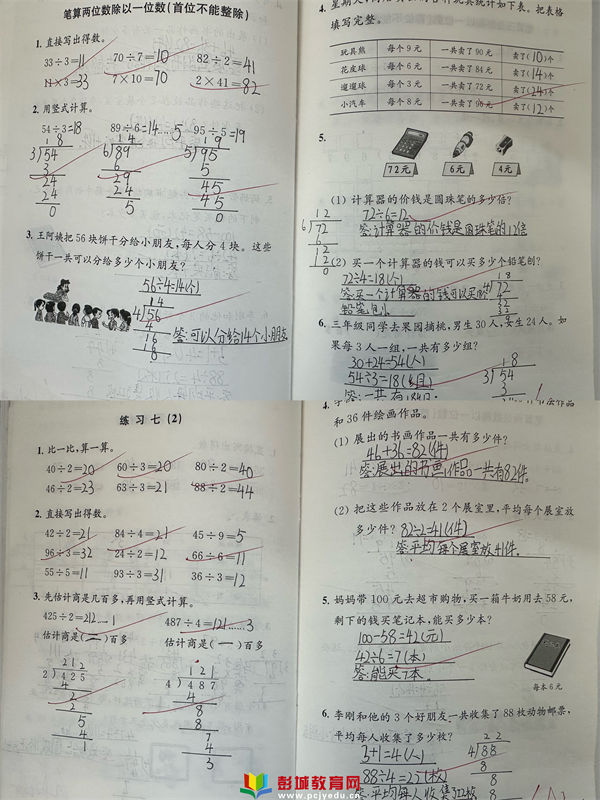 笔算两位数除以一位数(首位不能整除)
1. 直接写出得数。
33÷3=11 70÷7=10 82÷2=41
11×3=33 7×10=70 2×41=82
2. 用竖式计算。
54÷3=18 89÷6=14……5 95÷5=19
18 14 19
3)54 6)89 5)95
3 6 5
24 29 45
24 24 45
0 5 0
3. 王阿姨把56块饼干分给小朋友,每人分4块。这些
饼干一共可以分给多少个小朋友?
56÷4=14(个)
14
4)56
4
16
16
答:可以人分给14个小朋友
填写完整。
玩具熊 每个9元 一共卖了90元 卖了(10)个
花皮球 每个6元 一共卖了84元 卖了(14)个
遛遛球 每个3元 一共卖了72元 卖了(24)个
小汽车 每个8元 一共卖了96元 卖了(12)个
5.
72元 6元 4元
(1) 计算器的价钱是圆珠笔的多少倍?
72÷6=12
答:计算器的价钱是圆珠笔的12倍
12
6)72
6
12
12
0
(2) 买一个计算器的钱可以买多少个铅笔刨?
72÷4=18(个)
18
4)72
4
32
32
0
6. 三年级同学去果园摘桃,男生30人,女生24人。如
果每3人一组,一共有多少组?
30+24=54(人)
54÷3=18(组)
18
3)54
3
练习七(2)
1. 比一比,算一算。
40÷2=20 60÷3=20 80÷2=40
46÷2=23 63÷3=21 88÷2=44
2. 直接写出得数。
42÷2=21 84÷4=21 45÷9=5
96÷3=32 24÷2=12 66÷6=11
55÷5=11 93÷3=31 36÷3=12
3. 先估计商是几百多,再用竖式计算。
425÷2=212……1 487÷4=121……3
估计商是(二)百多 估计商是(一)百多
212 121
2)425 4)487
4 4
2 8
2 8
5 7
4 4
1 3
和36件绘画作品。
(1) 展出的书画作品一共有多少件?
46+36=82(件)
答:展出的书画作品一共有82件。
(2) 把这些作品放在2个展室里,平均每个展室放
多少件? 82÷2=41(件)
答:平均每个展室放41件.
5. 妈妈带100元去超市购物,买一箱牛奶用去58元,
剩下的钱买笔记本,能买多少本?
100-58=42(元)
42÷6=7(本)
答:能买7本.
每本6元
6. 李刚和他的3个好朋友一共收集了88枚动物邮票,
平均每人收集了多少枚?
3+1=4(人)
22
4)88
8
8
8
彭城教育网
www.pcjyedu.cn